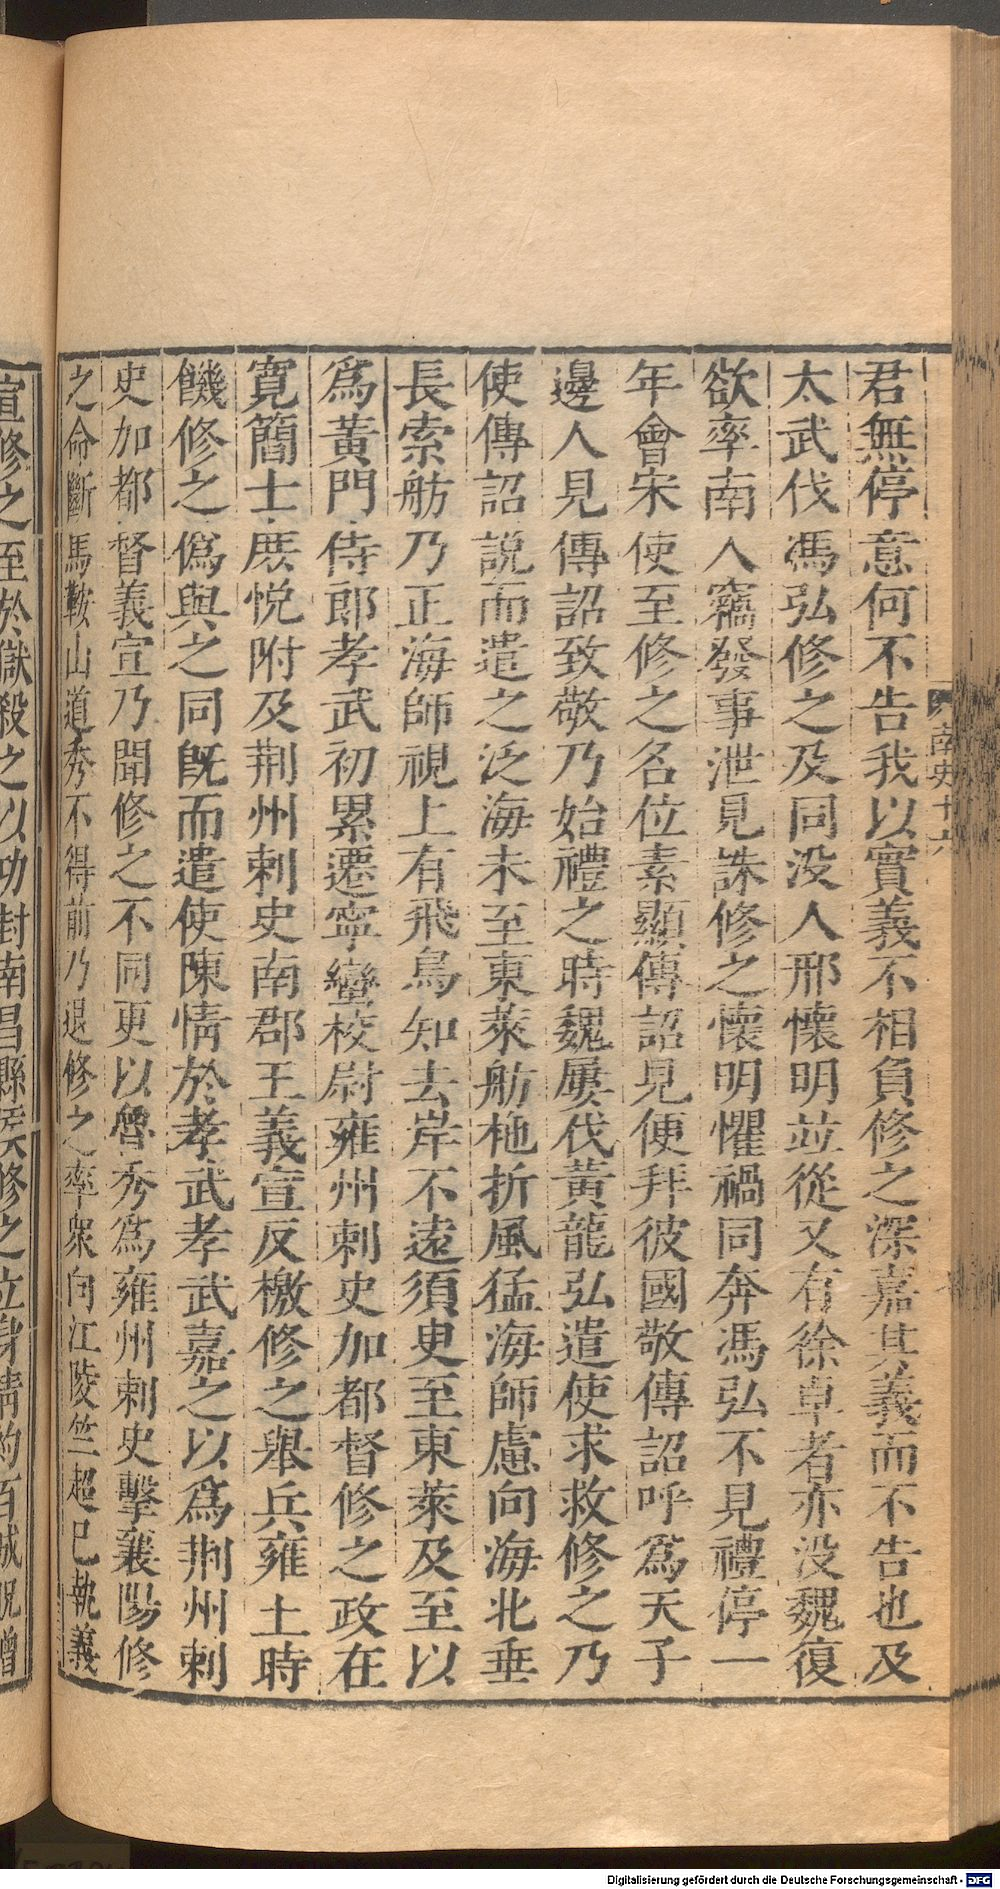 南史十六
君無停意何不告我以實義不相負修之深嘉其義而不告也及
太武伐馮弘修之及同没人邢懷明並從又有徐卓者亦没魏復
欲率南人竊發事泄見誅修之懷明懼禍同奔馮弘不見禮停一
年會宋使至修之名位素顯傳詔見便拜彼國敬傳詔呼爲天子
邊人見傳詔致敬乃始禮之時魏屢伐黃龍弘遣使求救修之乃
使傳詔說而遣之泛海未至東萊舫柂折風猛海師慮向海北垂
長索舫乃正海師視上有飛鳥知去岸不遠須臾至東萊及至以
爲黃門侍郎孝武初累遷寧蠻校尉雍州刺史加都督修之政在
寬簡士庶悅附及荆州刺史南郡王義宣反檄修之舉兵雍土時
饑修之僞與之同既而遣使陳情於孝武孝武嘉之以爲荆州刺
史加都督義宣乃聞修之不同更以魯秀爲雍州刺史擊襄陽修
之命斷馬鞍山道秀不得前乃退修之率衆向江陵竺超已執義
宣修之至於獄殺之以功封南昌縣侯修之立身清約百城貺贈
Digitalisierung gefördert durch die Deutsche Forschungsgemeinschaft - DFG